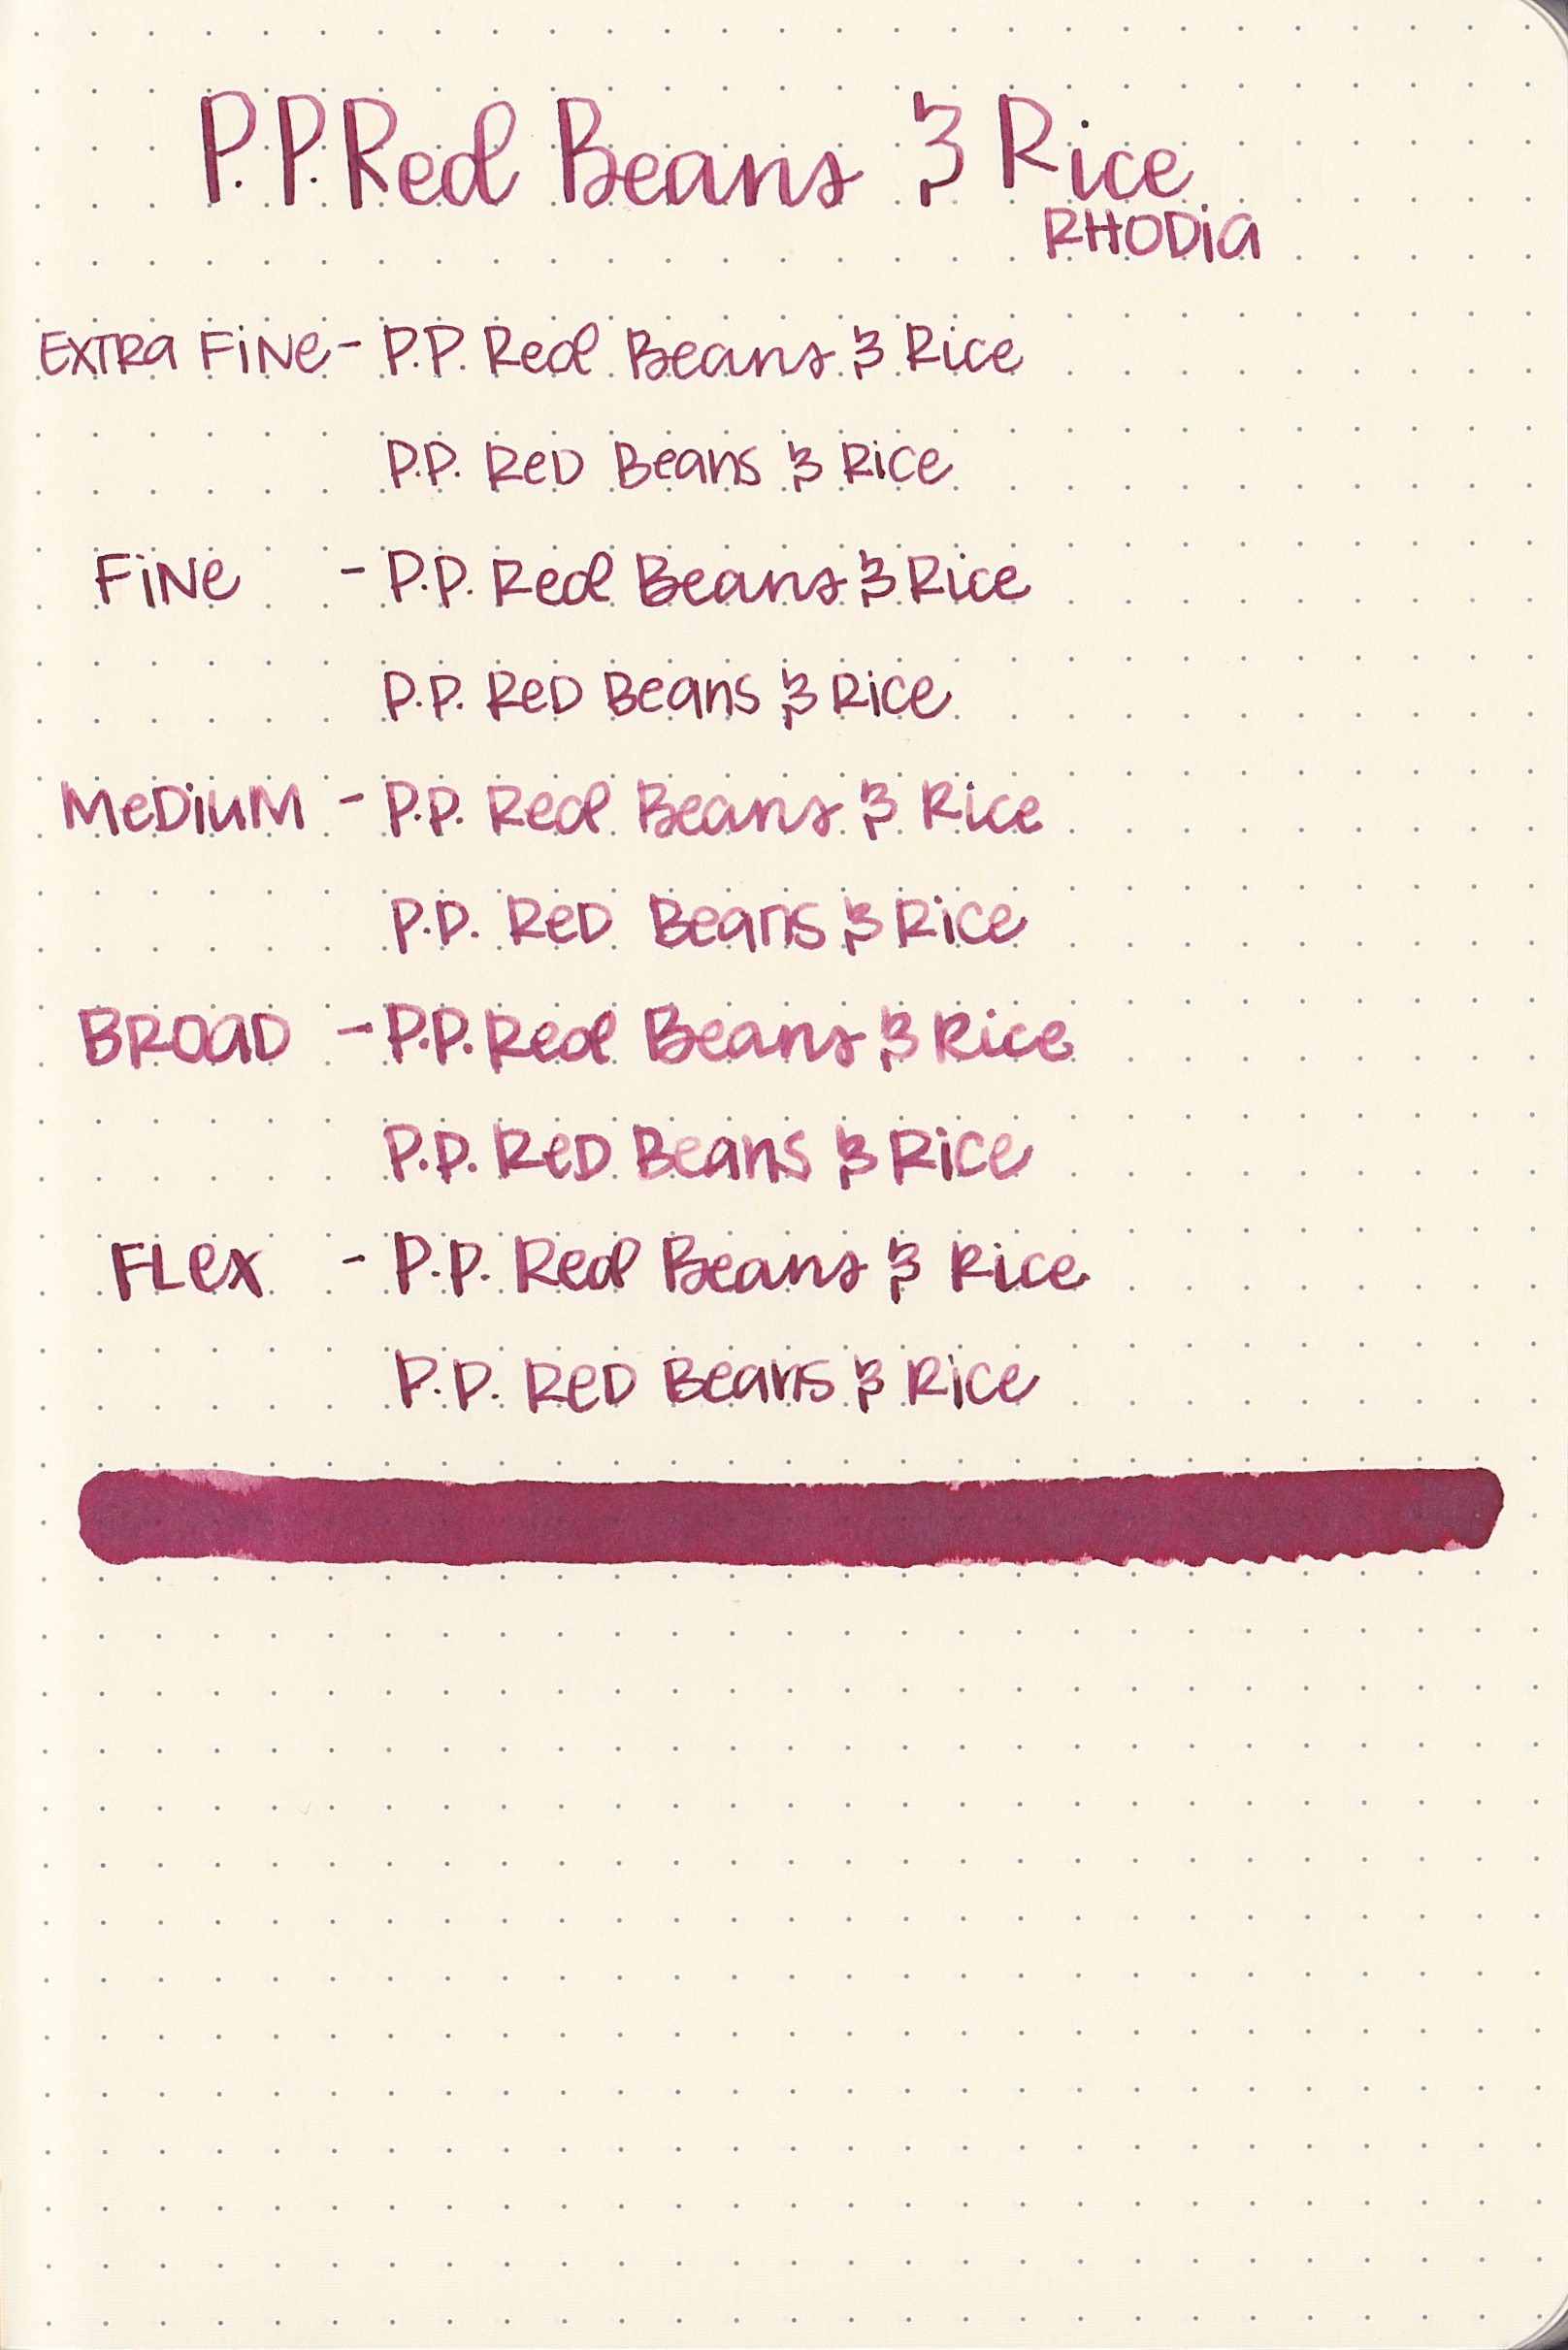 P.P. Red Beans & Rice
RHODiA
EXTRA FiNe - P.P. Red Beans & Rice
P.P. ReD Beans & Rice
FiNe - P.P. Red Beans & Rice
P.P. ReD Beans & Rice
MeDiuM - P.P. Red Beans & Rice
P.P. ReD Beans & Rice
BROAD - P.P. Red Beans & Rice
P.P. ReD Beans & Rice
FLex - P.P. Red Beans & Rice
P.P. ReD Beans & Rice